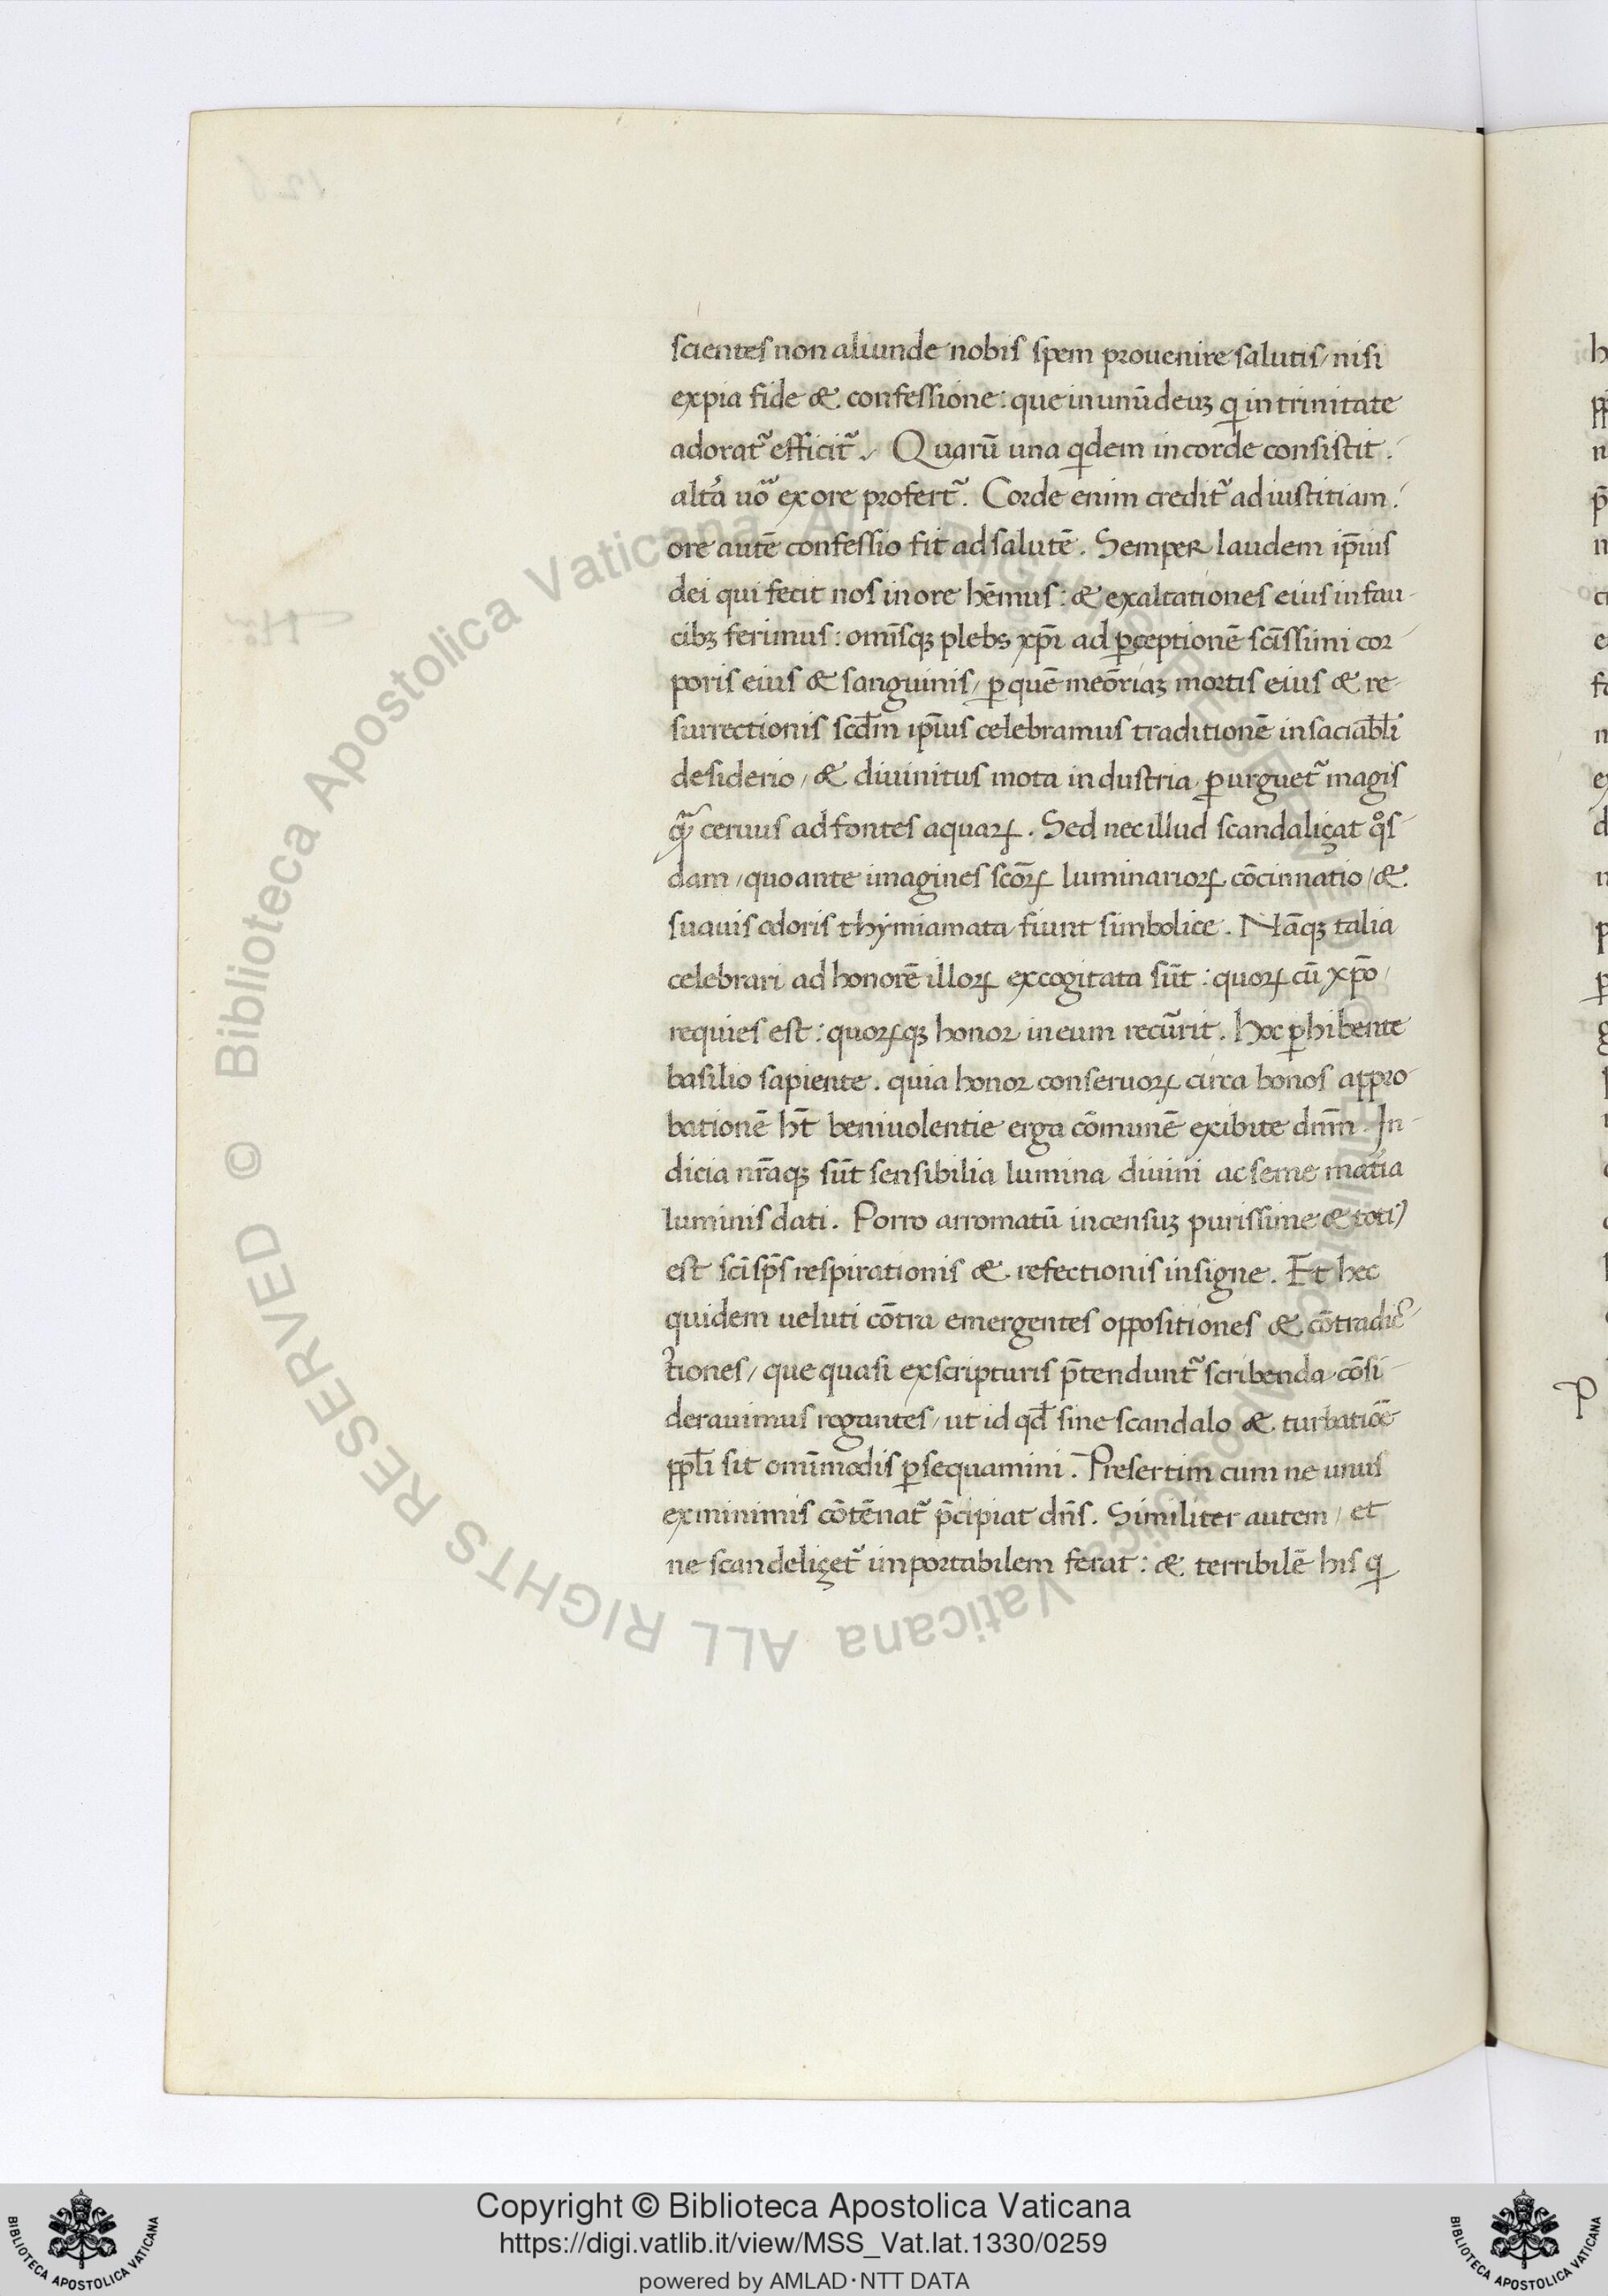 scientes non aliunde nobis spem prouenire salutis / nisi
ex pia fide & confessione : que in unū deuʒ qͥ in trinitate
adorat᷑ efficit᷑. Quarū una qͥdem in corde consistit .
altʼa uo᷑ ex ore profert᷑. Corde enim credit᷑ ad iustitiam .
ore autē confessio fit ad salutē . Semper laudem ip̄ius
dei qui fecit nos in ore hēmus : & exaltationes eius in fau-
cibʒ ferimus : omīsqʒ plebs xp̄i ad ꝑceptionē scīssimi cor-
poris eius & sanguinis / ꝑ quē meōriaʒ mortis eius & re-
surrectionis scd̄m ip̄ius celebramus traditionē insaciabl̄i
desiderio / & diuinitus mota industria ꝑurguet᷑ magis
qᷓ ceruus ad fontes aquaꝝ . Sed nec illud scandaliçat qͦs-
dam / quo ante imagines scōꝝ luminarioꝝ cōcinnatio / &
suauis odoris thymiamata fiunt simbolice . Nāqʒ talia
celebrari ad honorē illoꝝ excogitata sūt : quoꝝ cū xp̄o /
requies est : quoꝝqʒ honor in eum recūrit . Hoc ꝑhibente
basilio sapiente . quia honor conseruoꝝ circa bonos appro-
bationē hn̄t beniuolentie erga cōmunē exibite dnm̄ . In-
dicia nr̄aqʒ sūt sensibilia lumina diuini ac seme matʼia
luminis dati . Porro arromatū incensuʒ purissime & toti)
est scī sp̄s respirationis & refectionis insigne . Et hec
quidem ueluti cōtra emergentes oppositiones & cōtradic-
tiones / que quasi ex scripturis p̄tendunt᷑ scribenda cōsi-
derauimus rogantes / ut id qd̄ sine scandalo & turbatiōe
ppl̄i sit omīmodis ꝑsequamini . Presertim cum ne unus
ex minimis cōtēnat᷑ p̄cipiat dn̄s . Similiter autem / et
ne scandeliçet᷑ importabilem ferat : & terribilē his qͥ
Biblioteca Apostolica Vaticana ALL RIGHTS RESERVED ©
Copyright © Biblioteca Apostolica Vaticana
https://digi.vatlib.it/view/MSS_Vat.lat.1330/0259
powered by AMLAD · NTT DATA
BIBLIOTECA APOSTOLICA VATICANA
BIBLIOTECA APOSTOLICA VATICANA